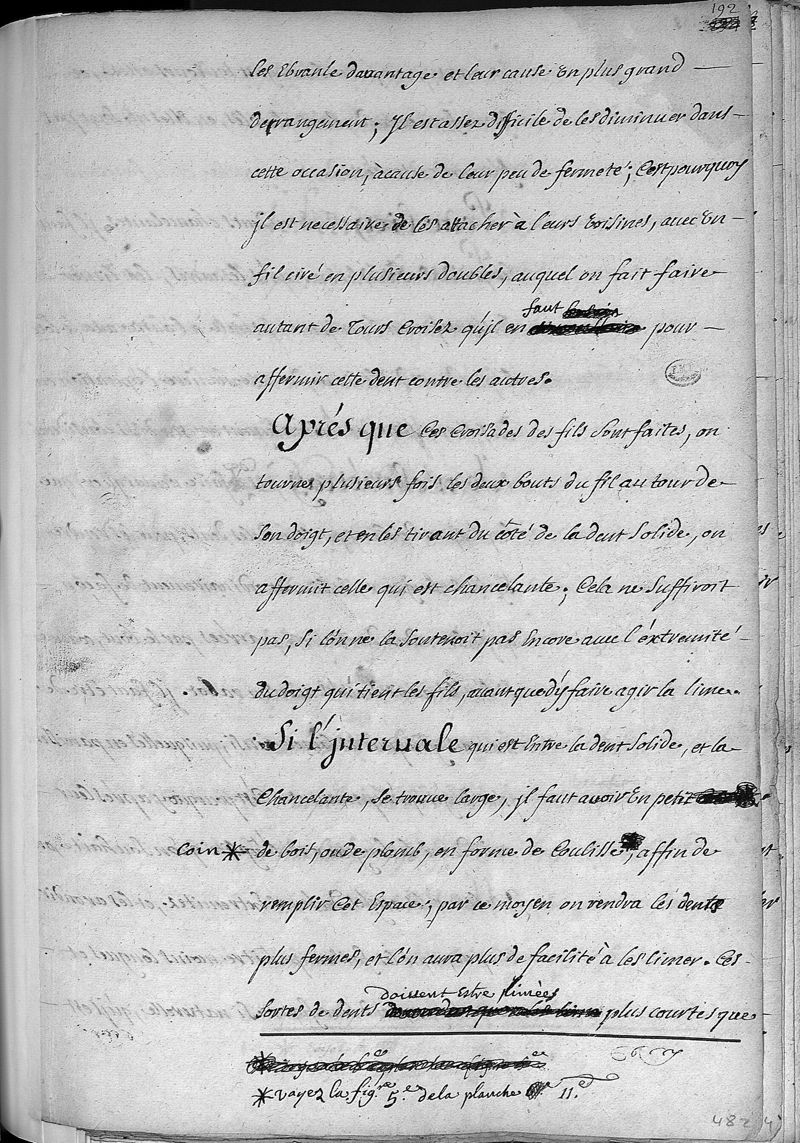 192
les Ebranle davantage et leur cause un plus grand
derrangement; Il est assez difficile de les diminuer dans
cette occasion, acause de leur peu de fermeté; C'est pourquoy
jl est necessaire de les attacher à leurs voisines, avec un
fil ciré en plusieurs doubles, auquel on fait faire
autant de Tours Croisez qu'jl en faut pour
affermir cette dent contre les autres.
Aprés que Ces Croisades des fils sont faites, on
tourne plusieurs fois les deux bouts du fil autour de
son doigt, et en les tirant du côté de la dent solide, on
affermit celle qui est chancelante; Cela ne suffiroit
pas, si l'on ne la soutenoit pas Encore avec l'éxtremité
du doigt qui tient les fils, avant que d'y faire agir la lime.
Si l'jntervale qui est Entre la dent solide, et la
Chancelante, se trouve large, jl faut avoir un petit
coin * de bois, ou de plomb, en forme de Coulisse, affin de
remplir Cet Espace; par ce moyen on rendra les dents
plus fermes, et l'on aura plus de facilité à les limer. Ces
sortes de dents doivent Estre limées plus courtes que
* voyez la figre 5.e de la planche 11.e
482